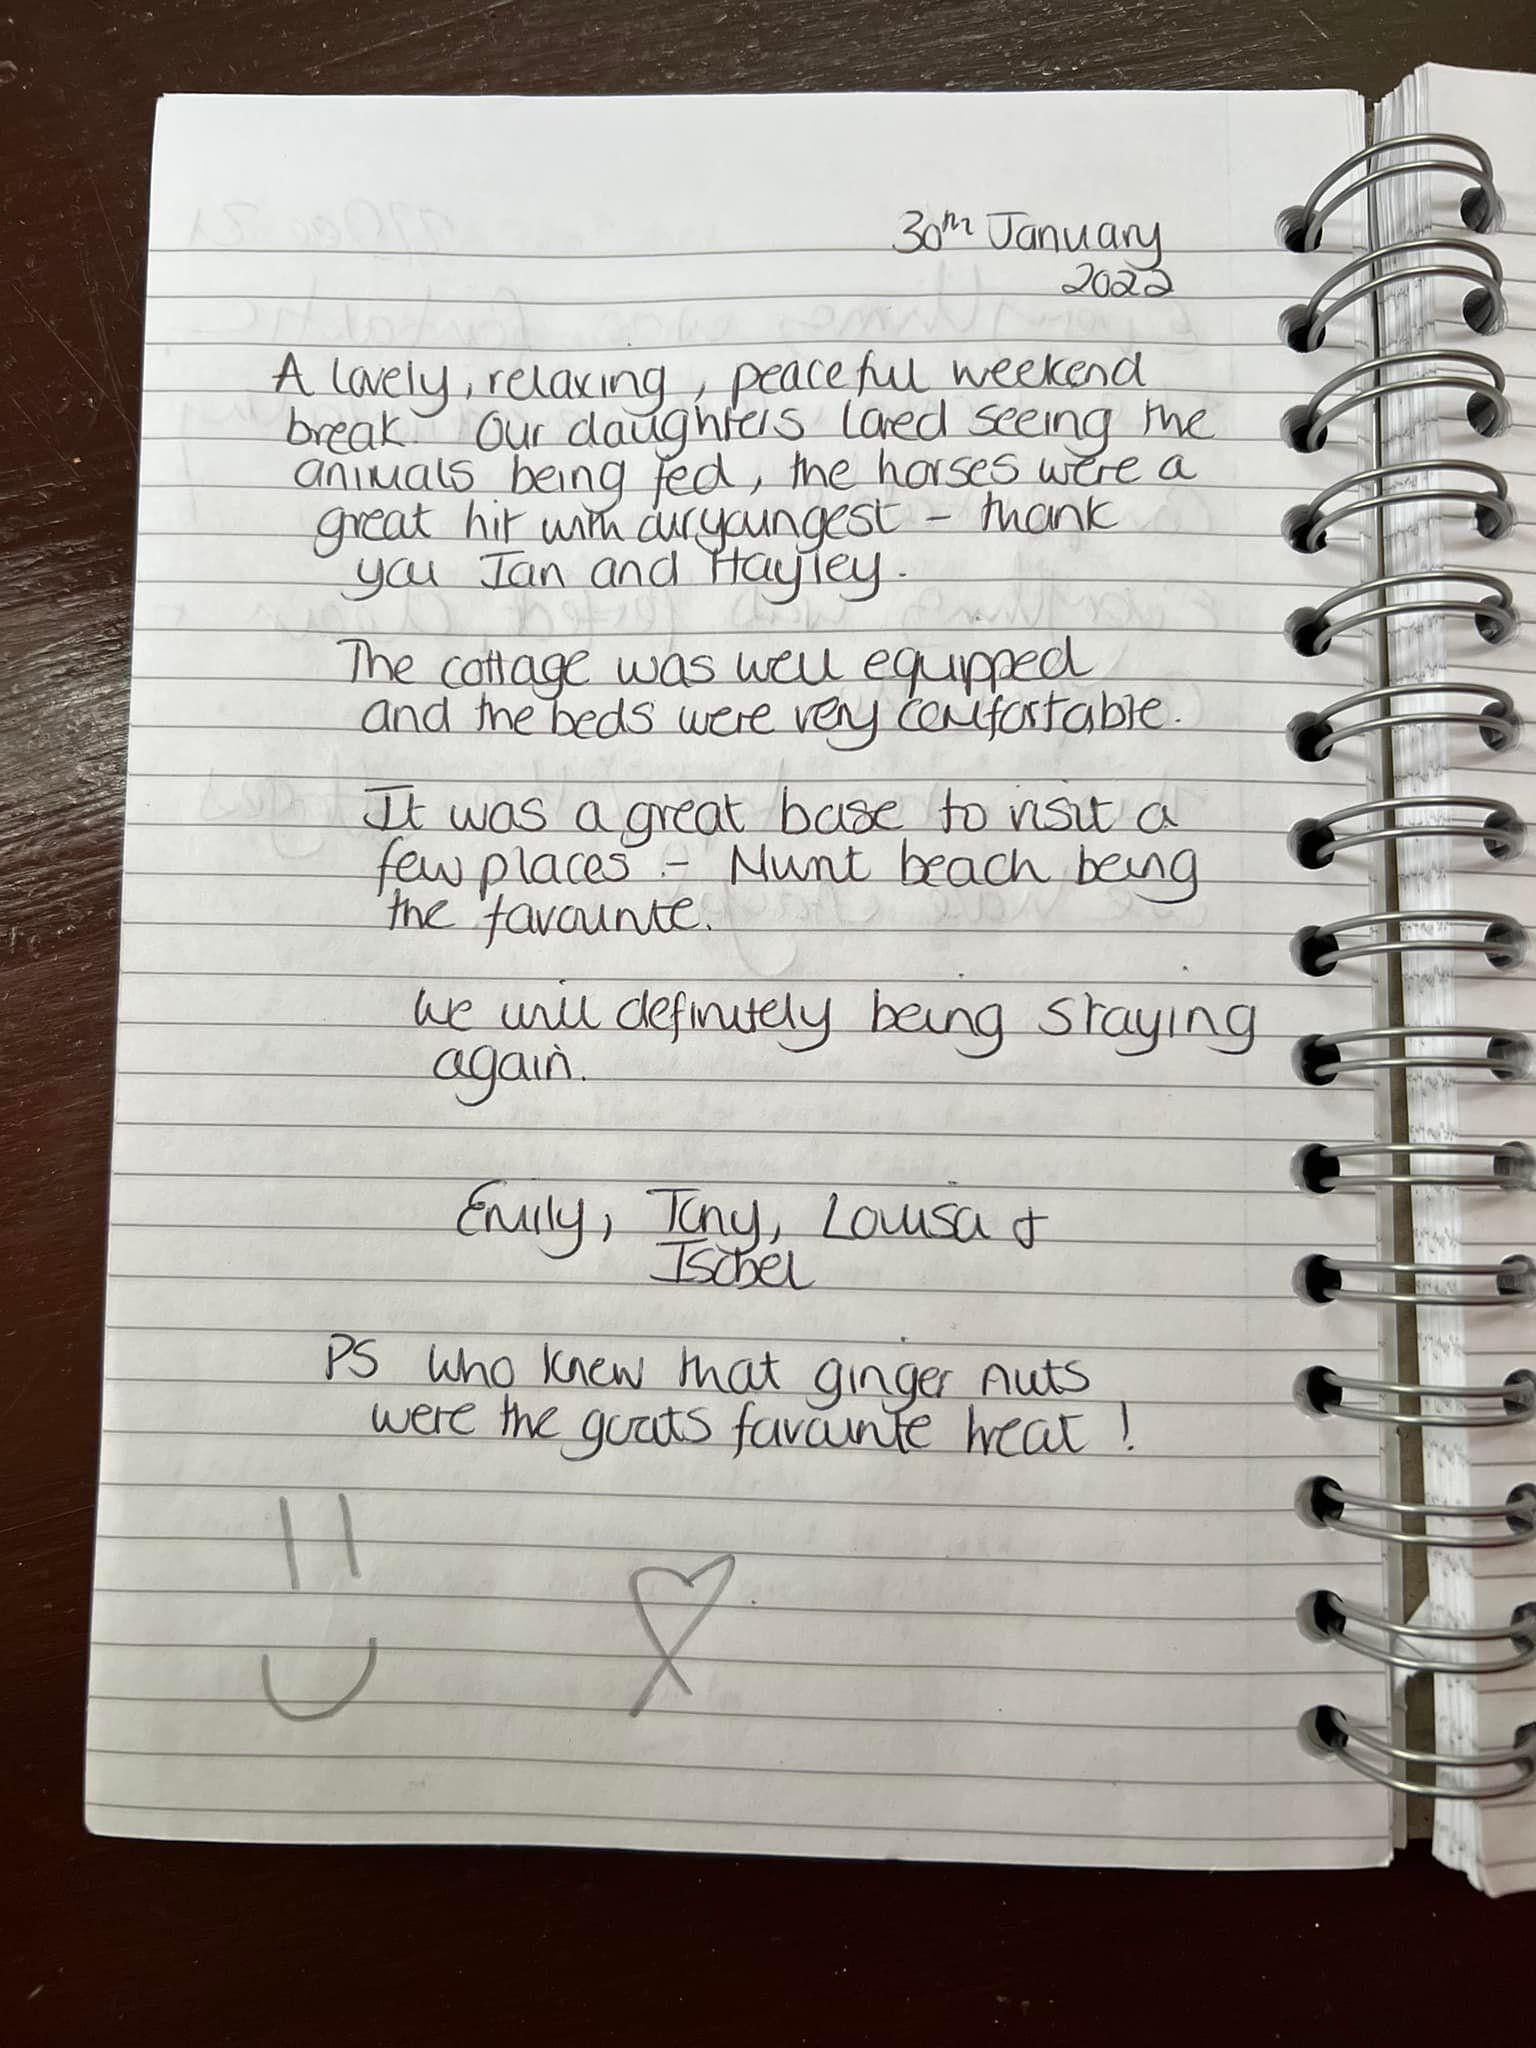 30th January
2022
A lovely, relaxing, peaceful weekend
break. Our daughters loved seeing the
animals being fed, the horses were a
great hit with our youngest - thank
you Ian and Hayley.
The cottage was well equipped
and the beds were very comfortable.
It was a great base to visit a
few places - Mwnt beach being
the favourite.
We will definitely being staying
again.
Emily, Tony, Louisa &
Isobel
PS Who knew that ginger nuts
were the goats favourite treat!